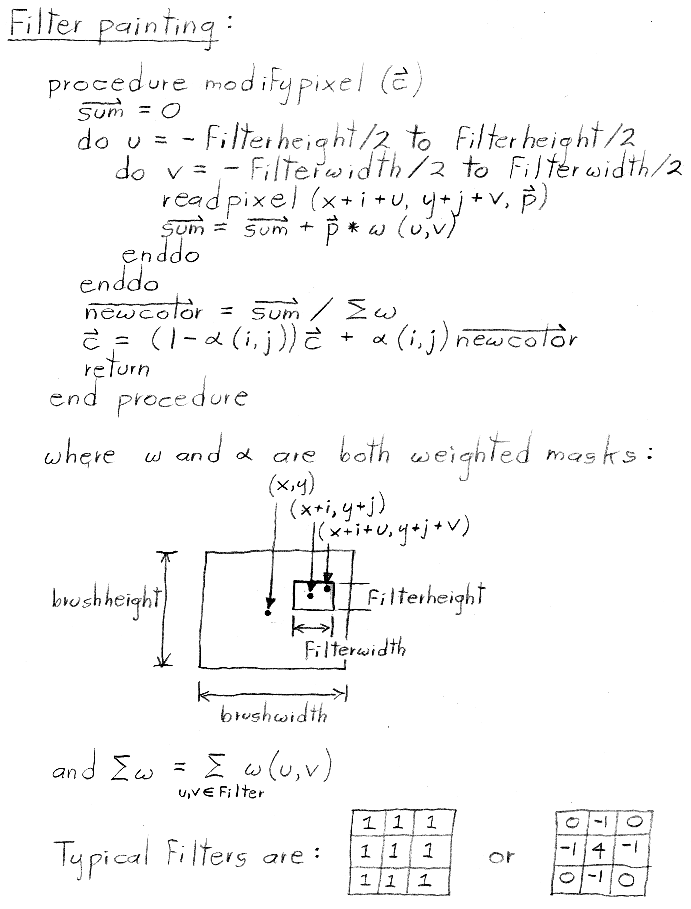 Filter painting:
procedure modifypixel (c⃗)
s⃗u⃗m⃗ = 0
do u = - Filterheight/2 to Filterheight/2
do v = - Filterwidth/2 to Filterwidth/2
readpixel (x+i+u, y+j+v, p⃗)
s⃗u⃗m⃗ = s⃗u⃗m⃗ + p⃗ * ω (u,v)
enddo
enddo
n⃗e⃗w⃗c⃗o⃗l⃗o⃗r⃗ = s⃗u⃗m⃗ / Σω
c⃗ = (1-α(i,j)) c⃗ + α(i,j) n⃗e⃗w⃗c⃗o⃗l⃗o⃗r⃗
return
end procedure
where ω and α are both weighted masks:
(x,y)
(x+i, y+j)
(x+i+u, y+j+v)
brushheight
Filterheight
Filterwidth
brushwidth
and Σω = Σ ω(u,v)
u,v∈Filter
Typical Filters are:
1 1 1
1 1 1
1 1 1
or
0 -1 0
-1 4 -1
0 -1 0